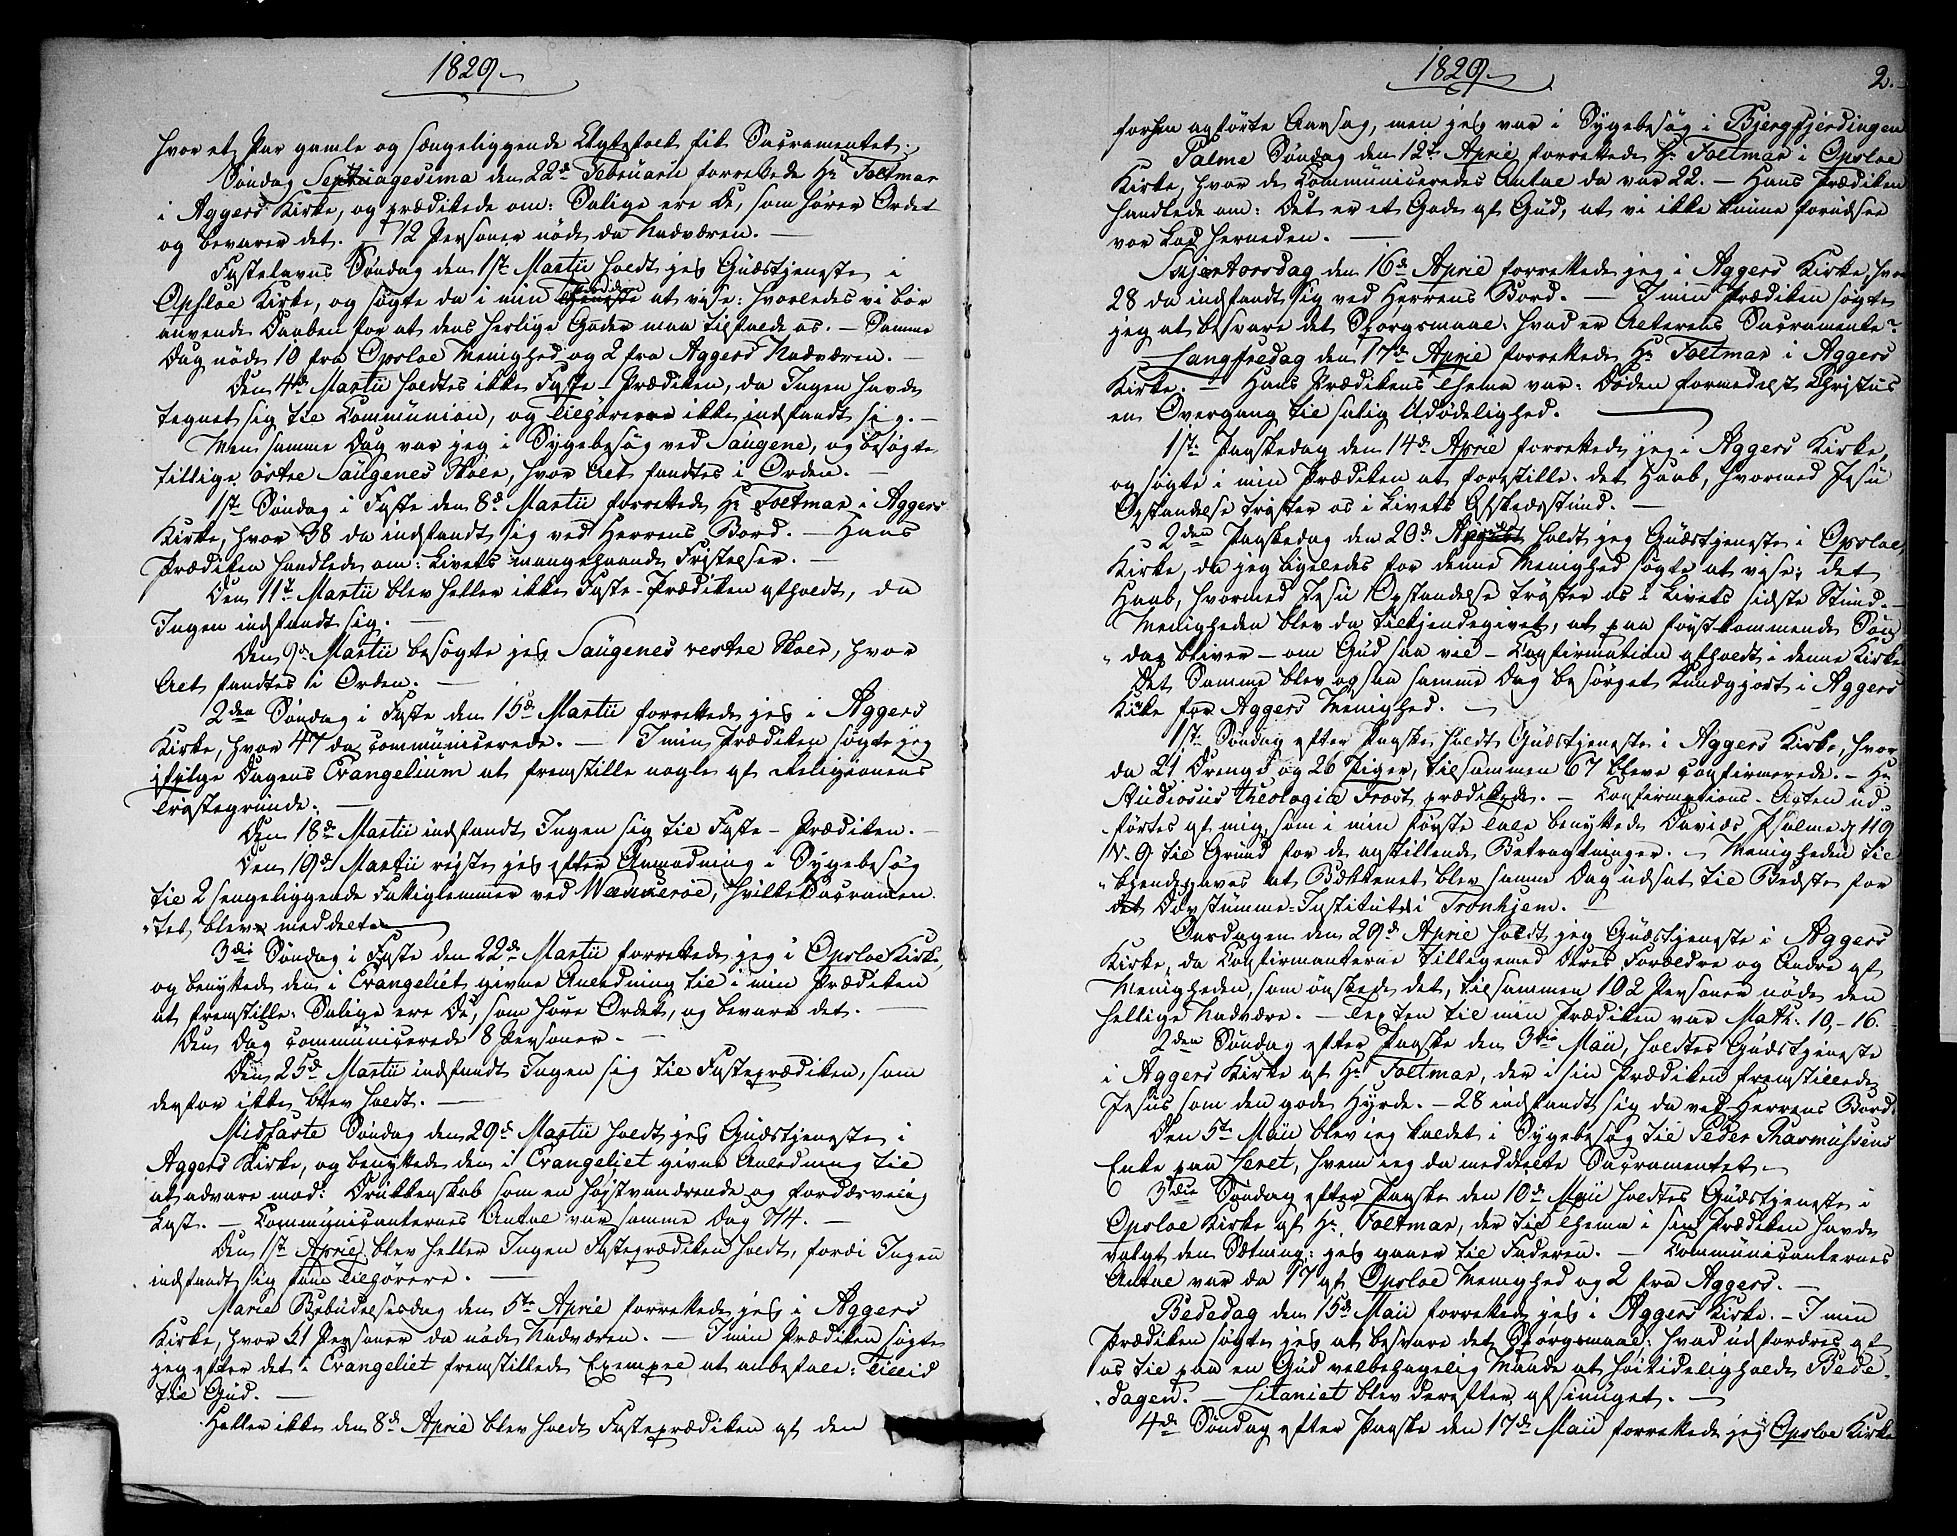 1829
hvor et Par gamle og sængeliggende Ægtefolk fik Sacramentet.
Søndag Septuagesima den 22de Februarii forrettede Hr Foltmar
i Aggers Kirke, og prædikede om: Salige ere De, som hører Ordet
og bevarer det. — 12 Personer nøde da Nadveren. —
Fastelavns Søndag den 1ste Martii holdt jeg Gudstjeneste i
Opsloe Kirke, og søgte da i min at vise: hvorledes vi bør
anvende Daaben for at dens herlige Goder maa tilfalde os. — Samme
Dag nøde 10 fra Opsloe Menighed og 2 fra Aggers Nadveren. —
Den 4de Martii holdtes ikke Faste-Prædiken, da Ingen havde
tegnet sig til Communion, og Tilhørere ikke indfandt sig. —
Men samme Dag var jeg i Sygebesøg ved Saugene, og besøgte
tillige østre Saugenes Skole, hvor Alt fandtes i Orden. —
1ste Søndag i Faste den 8de Martii forrettede Hr Foltmar i Aggers
Kirke, hvor 38 da indfandt sig ved Herrens Bord. — Hans
Prædiken handlede om: Livets mangehaande Fristelser. —
Den 11te Martii blev heller ikke Faste-Prædiken afholdt, da
Ingen indfandt sig. —
Den 9de Martii besøgte jeg Saugenes vestre Skole, hvor
Alt fandtes i Orden. —
2den Søndag i Faste den 15de Martii forrettede jeg i Aggers
Kirke, hvor 47 da communicerede. — I min Prædiken søgte jeg
ifølge Dagens Evangelium at fremstille nogle af Religionens
Trøstegrunde. —
Den 18de Martii indfandt Ingen sig til Faste-Prædiken. —
Den 19de Martii reiste jeg efter Anmodning i Sygebesøg
til 2 sengeliggende Fattiglemmer ved Wækkerøe, hvilke Sacramen-
tet blev meddelt.
3die Søndag i Faste den 22de Martii forrettede jeg i Opsloe Kirke,
og benyttede den i Evangeliet givne Anledning til i min Prædiken
at fremstille: Salige ere De, som høre Ordet, og bevare det. —
Den Dag communicerede 8 Personer. —
Den 25de Martii indfandt Ingen sig til Fasteprædiken, som
derfor ikke blev holdt. —
Midfaste Søndag den 29de Martii holdt jeg Gudstjeneste i
Aggers Kirke, og benyttede den i Evangeliet givne Anledning til
at advare mod: Drukkenskab som en høistvanærende og fordærvelig
Last. — Communicanternes Antal var samme Dag 74. —
Den 1ste April blev heller Ingen Fasteprædiken holdt, fordi Ingen
indfandt sig som Tilhørere. —
Mariæ Bebudelsesdag den 5te April forrettede jeg i Aggers
Kirke, hvor 51 Personer da nøde Nadveren. — I min Prædiken søgte
jeg efter det i Evangeliet fremstillede Exempel at anbefale: Tillid
til Gud. —
Heller ikke den 8de April blev holdt Fasteprædiken af den
1829
2.
forhen anførte Aarsag, men jeg var i Sygebesøg i Bjergfjerdingen
Palme Søndag den 12te April forrettede Hr Foltmar i Opsloe
Kirke, hvor de Communiceredes Antal da var 22. — Hans Prædiken
handlede om: Det er et Gode af Gud, at vi ikke kunne forudsee
vor Lod herneden. —
Skjærtorsdag den 16de April forrettede jeg i Aggers Kirke, hvor
28 da indfandt sig ved Herrens Bord. — I min Prædiken søgte
jeg at besvare det Spørgsmaal: hvad er Alterens Sacramente?
Langfredag den 17de April forrettede Hr Foltmar i Aggers
Kirke. — Hans Prædikens Thema var: Døden formedelst Christus
en Overgang til salig Udødelighed. —
1ste Paaskedag den 14de April forrettede jeg i Aggers Kirke,
og søgte i min Prædiken at forestille: det Haab, hvormed Jesu
Opstandelse trøster os i Livets Afskedsstund. —
2den Paaskedag den 20de April holdt jeg Gudstjeneste i Opsloe
Kirke, da jeg ligeledes for denne Menighed søgte at vise: det
Haab, hvormed Jesu Opstandelse trøster os i Livets sidste Stund. —
Menigheden blev da tilkjendegivet, at paa førstkommende Søn-
dag bliver — om Gud saa vil — Confirmation afholdt i denne Kirke
Det Samme blev ogsaa samme Dag besørget kundgjort i Aggers
Kirke for Aggers Menighed. —
1ste Søndag efter Paaske holdt Gudstjeneste i Aggers Kirke, hvor
da 21 Drenge og 26 Piger, tilsammen 67 bleve confirmerede. — Hr
Studiosus Theologiæ Frost prædikede. — Confirmations-Acten ud-
førtes af mig, som i min første Tale benyttede Davids Psalme 119
V. 9 til Grund for de anstillende Betragtninger. — Menigheden til-
kjendegaves at Bækkenet blev samme Dag udsat til Bedste for
det Døvstumme-Institut i Tronhjem. —
Onsdagen den 29de April holdt jeg Gudstjeneste i Aggers
Kirke, da Confirmanterne tilligemed Deres Forældre og Andre af
Menigheden, som ønskede det, tilsammen 102 Personer nøde den
hellige Nadvere. — Texten til min Prædiken var Math. 10,-16.
2den Søndag efter Paaske den 3die Maii, holdtes Gudstjeneste
i Aggers Kirke af Hr Foltmar, der i sin Prædiken fremstillede
Jesus som den gode Hyrde. — 28 indfandt sig da ved Herrens Bord.
Den 5te Maii blev jeg kaldet i Sygebesøg til Peder Rasmussens
Enke paa , hvem jeg da meddelte Sacramentet. —
3die Søndag efter Paaske den 10de Maii holdtes Gudstjeneste i
Opsloe Kirke af Hr Foltmar, der til Thema i sin Prædiken havde
valgt den Sætning: jeg gaaer til Faderen. — Communicanternes
Antal var da 17 af Opsloe Menighed og 2 fra Aggers. —
Bededag den 15de Maii forrettede jeg i Aggers Kirke. — I min
Prædiken søgte jeg at besvare det Spørgsmaal: hvad udfordres af
os til paa en Gud velbehagelig Maade at høitideligholde Bede-
dagen. — Litaniet blev derefter afsunget. —
4de Søndag efter Paaske den 17de Maii forrettede jeg i Opsloe Kirke